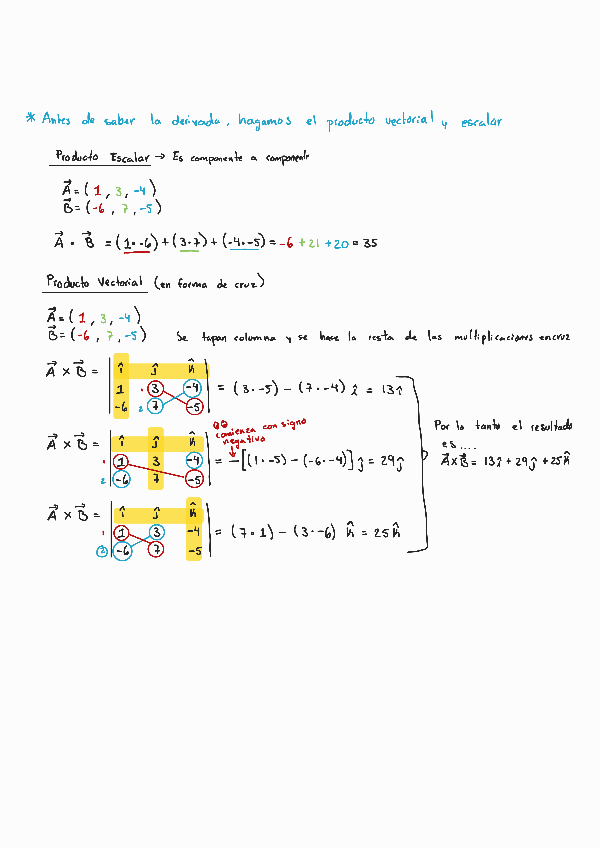 * Antes de saber la derivada, hagamos el producto vectorial y escalar
Producto Escalar → Es componente a componente
A⃗ = (1, 3, -4)
B⃗ = (-6, 7, -5)
A⃗ • B⃗ = (1•-6) + (3•7) + (-4•-5) = -6 + 21 + 20 = 35
Producto Vectorial (en forma de cruz)
A⃗ = (1, 3, -4)
B⃗ = (-6, 7, -5)
Se tapan columna y se hace la resta de las multiplicaciones en cruz
A⃗ × B⃗ = | î ĵ k̂ |
| 1 1 3 -4 |
| -6 2 7 -5 |
= (3•-5) - (7•-4) î = 13î
comienza con signo
negativo
A⃗ × B⃗ = | î ĵ k̂ |
1 | 1 3 -4 |
2 | -6 7 -5 |
= -[(1•-5) - (-6•-4)] ĵ = 29ĵ
A⃗ × B⃗ = | î ĵ k̂ |
1 | 1 3 -4 |
2 | -6 7 -5 |
= (7•1) - (3•-6) k̂ = 25k̂
Por lo tanto el resultado
es ....
A⃗×B⃗ = 13î + 29ĵ + 25k̂